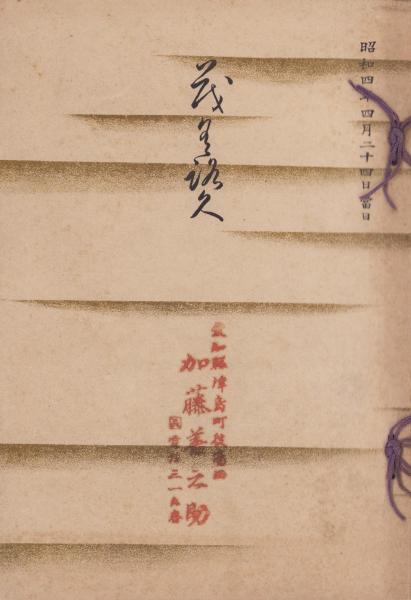 昭和四年四月二十四日當日
もくろく
愛知縣津島町
加藤善之助
電話三一五番